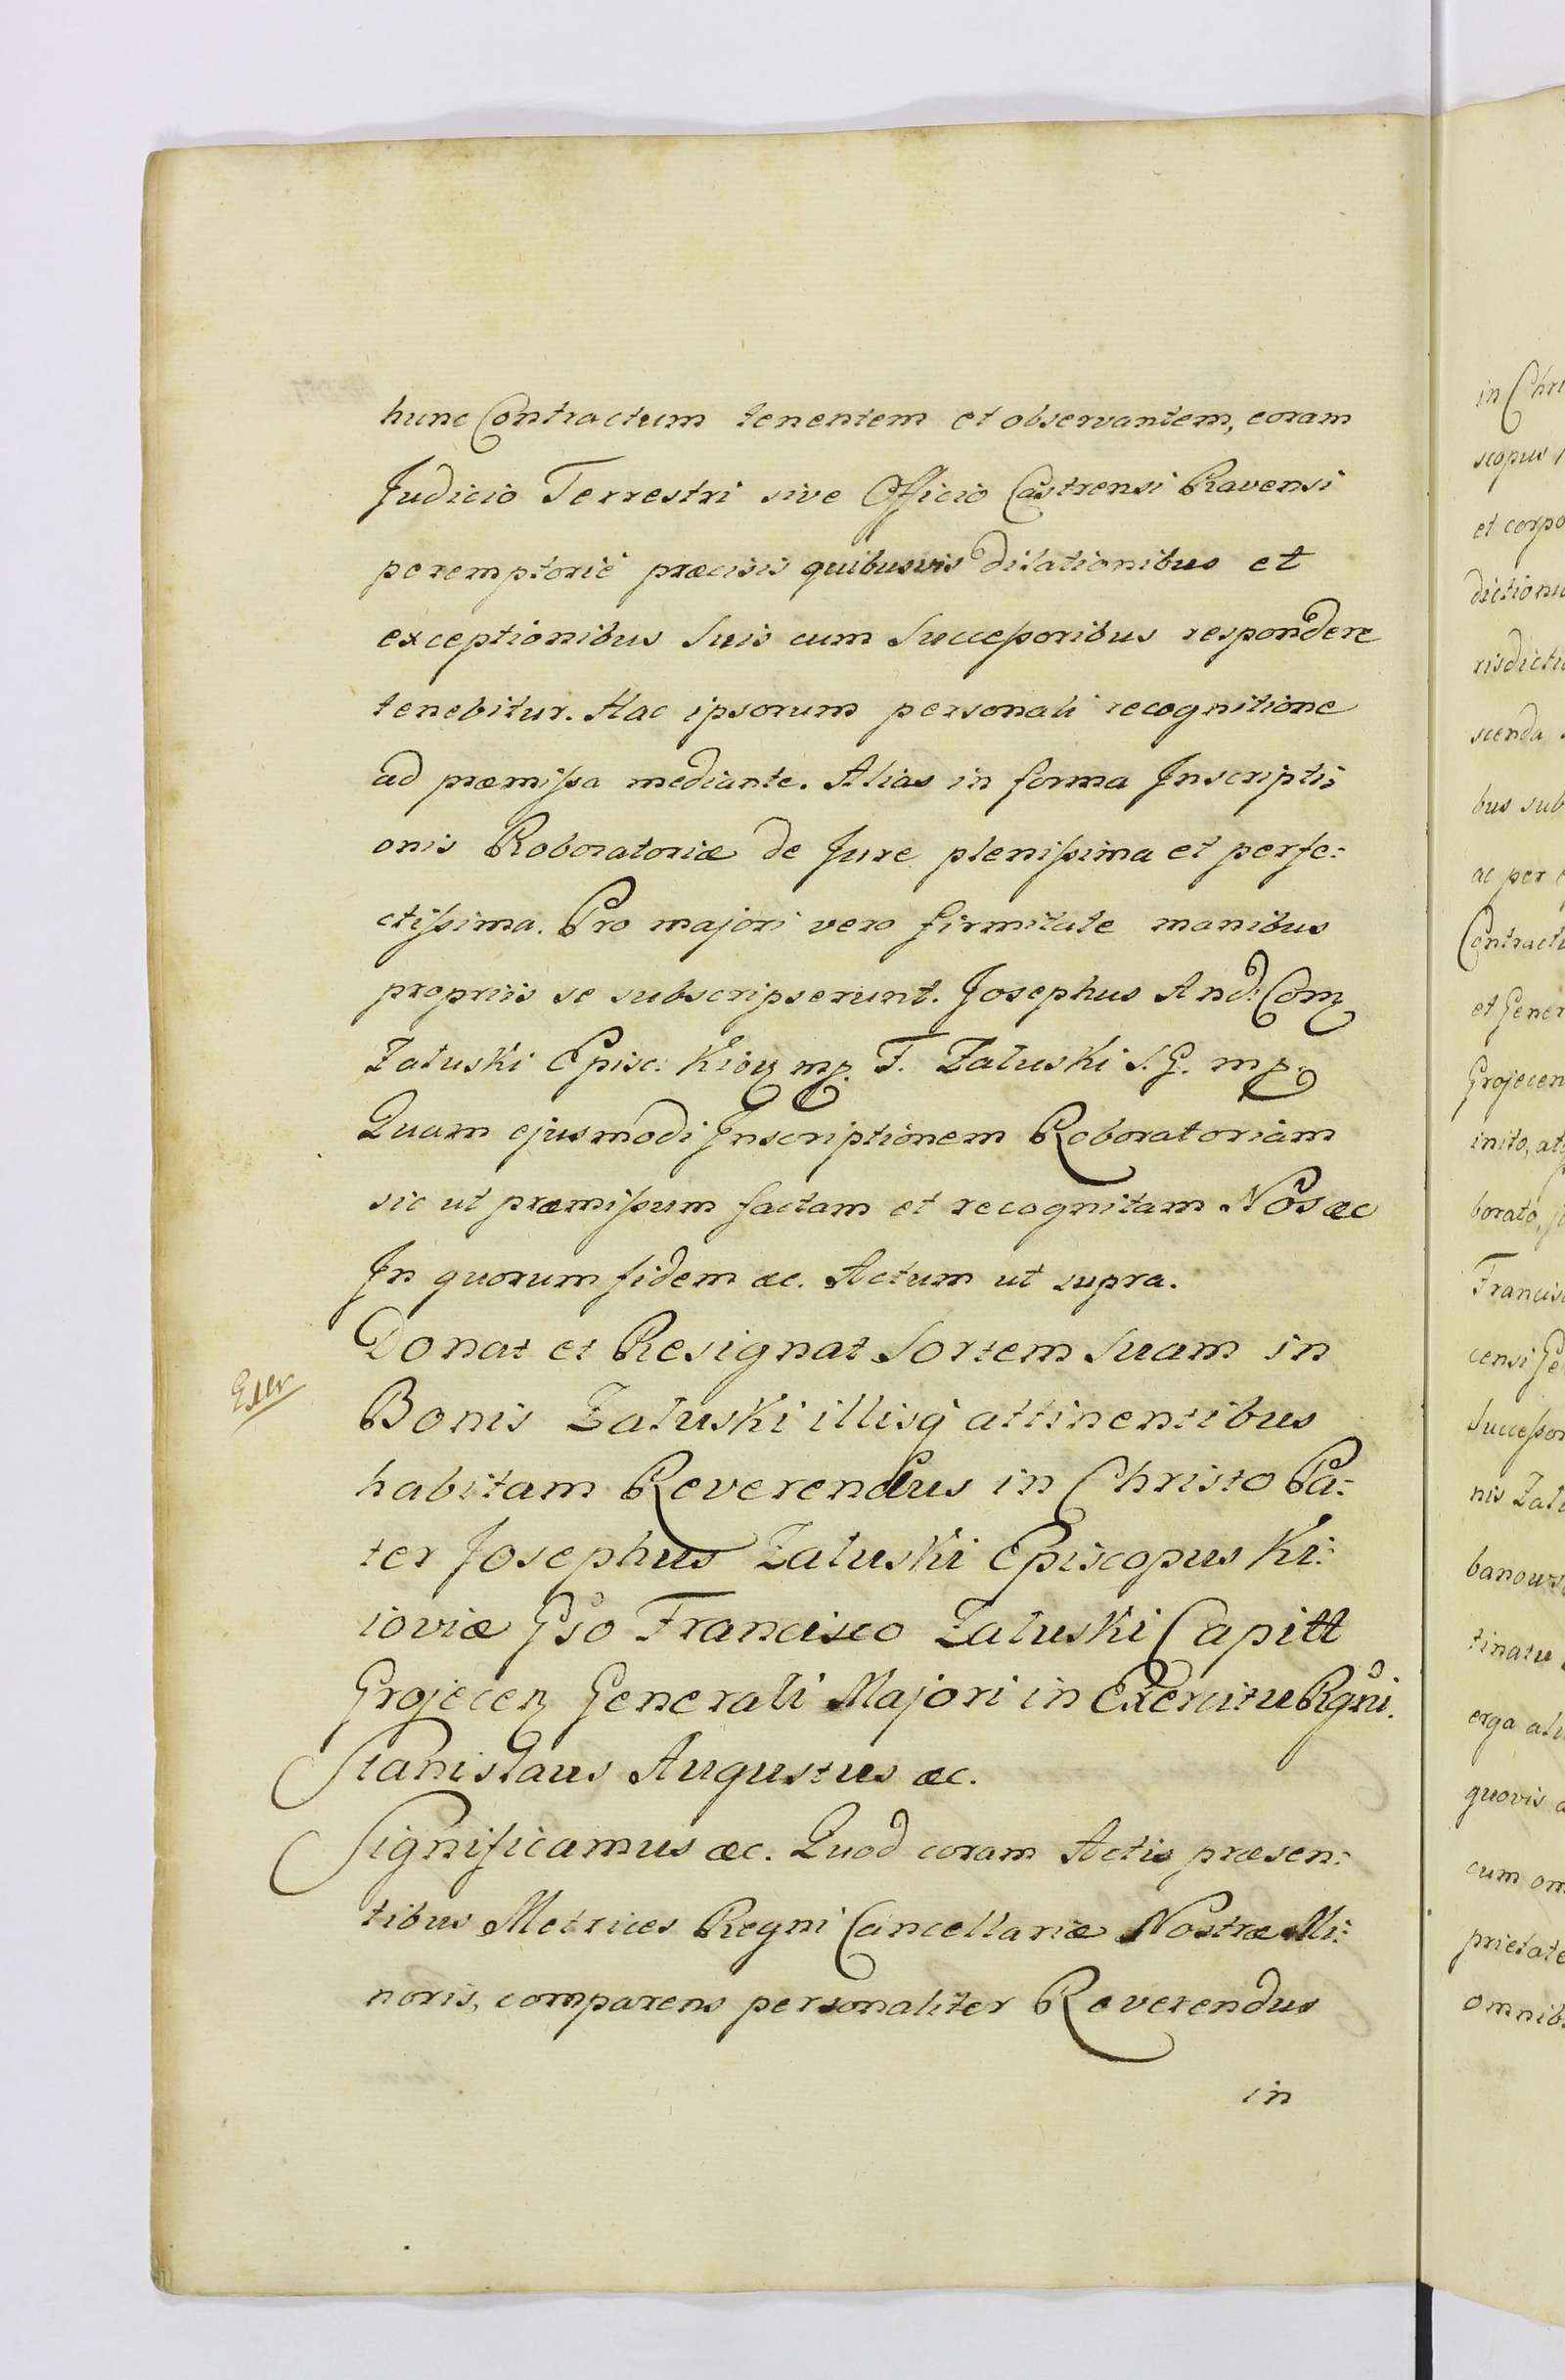 hunc Contractum tenentem et observantem, coram
Judicio Terrestri sive Officio Castrensi Ravensi
peremptorie præcisis quibusvis dilationibus et
exceptionibus suis cum Successoribus respondere
tenebitur. Hac ipsorum personali recognitione
ad præmissa mediante. Alias in forma Inscripti:
onis Roboratoriæ de Jure plenissima et perfe:
ctissima. Pro majori vero firmitate manibus
propriis se subscripserunt. Josephus And: Com
Zaluski Episc: Kiov mp. F. Zaluski S. G. mp.
Quam ejusmodi Inscriptionem Roboratoriam
sic ut præmissum factam et recognitam Nos æc
In quorum fidem æc. Actum ut supra.
Donat et Resignat Sortem Suam in
Bonis Zaluski illisq attinentibus
habitam Reverendus in Christo Pa:
ter Josephus Zaluski Episcopus Ki:
ioviæ Gso Francisco Zaluski Capitt
Grojecen Generali Majori in Exercitu Rgni.
Stanislaus Augustus æc.
Significamus æc. Quod coram Actis præsen:
tibus Metrices Regni Cancellariæ Nostræ Mi:
noris, comparens personaliter Reverendus
in
in Chri
scopus
et corpo
dictioni
risdicti
scenda
bus sub
ac per
Contract
et Gener
Grojecen
inito, at
borato,
Francis
censi Ge
Successor
nis Zal
banows
tinatu
erga ali
quovis
cum om
prietate
omnib